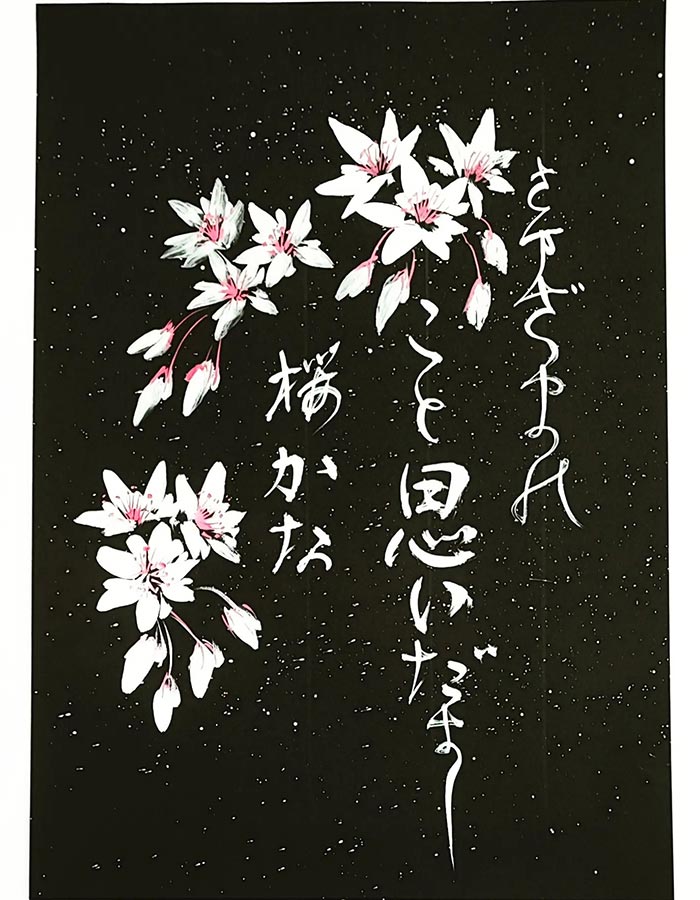 さまざまの
こと思いだす
桜かな